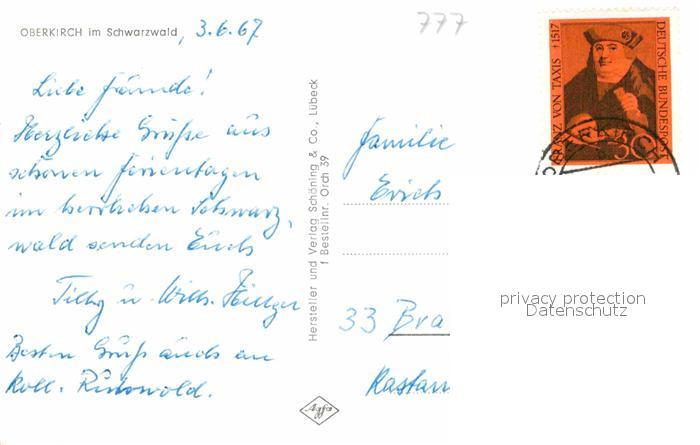 OBERKIRCH im Schwarzwald, 3.6.67
777
Liebe Freunde!
Herzliche Grüße aus
schönen Ferientagen
im herrlichen Schwarz-
wald senden Euch
Tilly u. Willi
Besten Gruß auch an
Koll.
Hersteller und Verlag Schöning & Co., Lübeck
Bestellnr. Orch 39
Familie
Erich
33 Bra
Kastan
Agfa
FRANZ VON TAXIS †1517
DEUTSCHE BUNDESPOST
30
privacy protection
Datenschutz